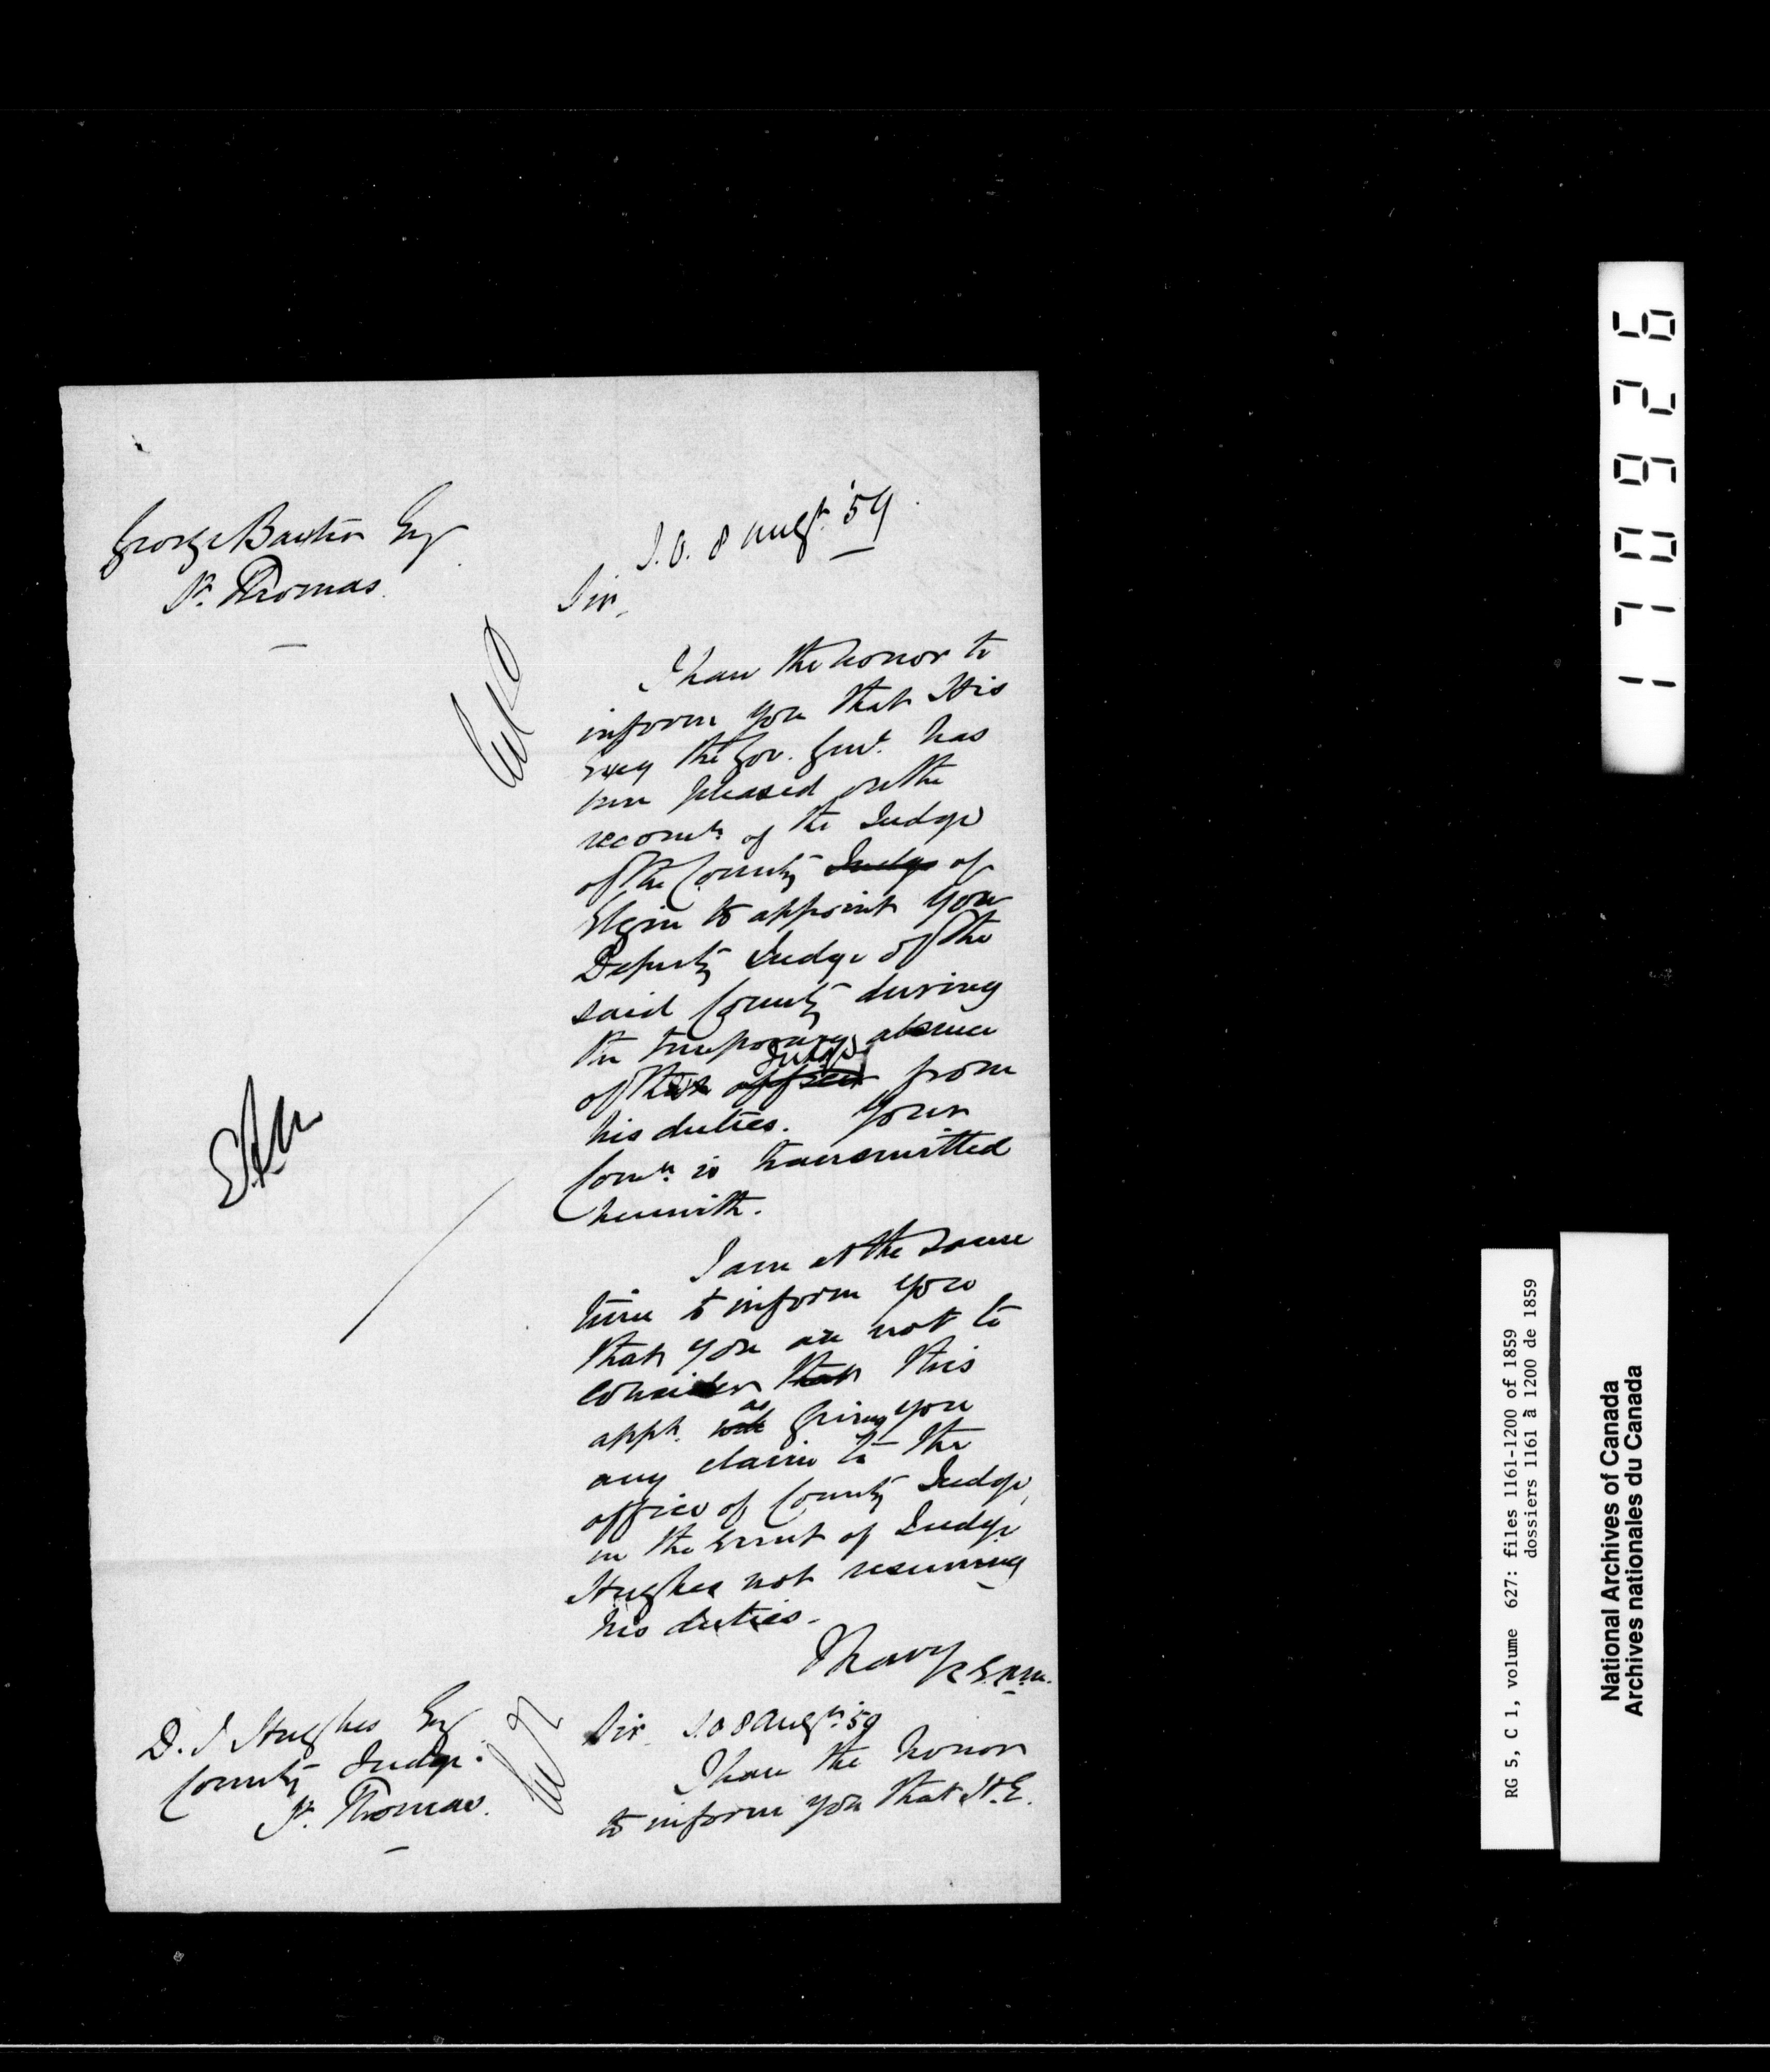 George Baxter Esq
St. Thomas.
S.O. 8 Augt. '59
Sir,
I have the honor to
inform you that His
Excy the Gov. Genl. has
been pleased on the
recomn. of the Judge
of the County Judge of
Elgin to appoint you
Deputy Judge of the
said County during
the temporary absence
Judge
of this officer from
his duties. Your
Comn. is transmitted
herewith.
I am at the same
time to inform you
that you are not to
consider that this
as
appt. giving you
any claim to the
office of County Judge,
in the event of Judge
Hughes not resuming
his duties.
I have
D. J Hughes Esq
County Judge.
St. Thomas.
Sir, S.O 8 Augt. 59
I have the honor
to inform you that H.E.
170926
RG 5, C 1, volume 627: files 1161-1200 of 1859
dossiers 1161 à 1200 de 1859
National Archives of Canada
Archives nationales du Canada